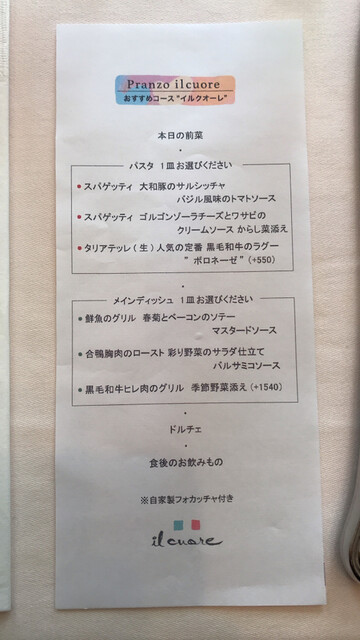 Pranzo ilcuore
おすすめコース"イルクオーレ"
本日の前菜
・
パスタ 1皿お選びください
●スパゲッティ 大和豚のサルシッチャ
バジル風味のトマトソース
●スパゲッティ ゴルゴンゾーラチーズとワサビの
クリームソース からし菜添え
●タリアテッレ(生)人気の定番 黒毛和牛のラグー
"ボロネーゼ"(+550)
・
メインディッシュ 1皿お選びください
●鮮魚のグリル 春菊とベーコンのソテー
マスタードソース
●合鴨胸肉のロースト 彩り野菜のサラダ仕立て
バルサミコソース
●黒毛和牛ヒレ肉のグリル 季節野菜添え(+1540)
・
ドルチェ
・
食後のお飲みもの
※自家製フォカッチャ付き
il cuore